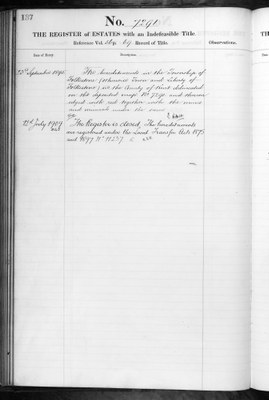 137
No. 7290
THE REGISTER of ESTATES with an Indefeasible Title.
Reference Vol. 69 Record of Title.
Observations.
Date of Entry
Description
23rd September 1890
The hereditaments in the Township of
Folkestone (otherwise Town and Liberty of
Folkestone) in the County of Kent delineated
on the deposited map No 7290 and thereon
edged with red together with the mines
and minerals under the same
21st July 1909
The Register is closed. The hereditaments
are registered under the Land Transfer Act 1875
and 1897 No